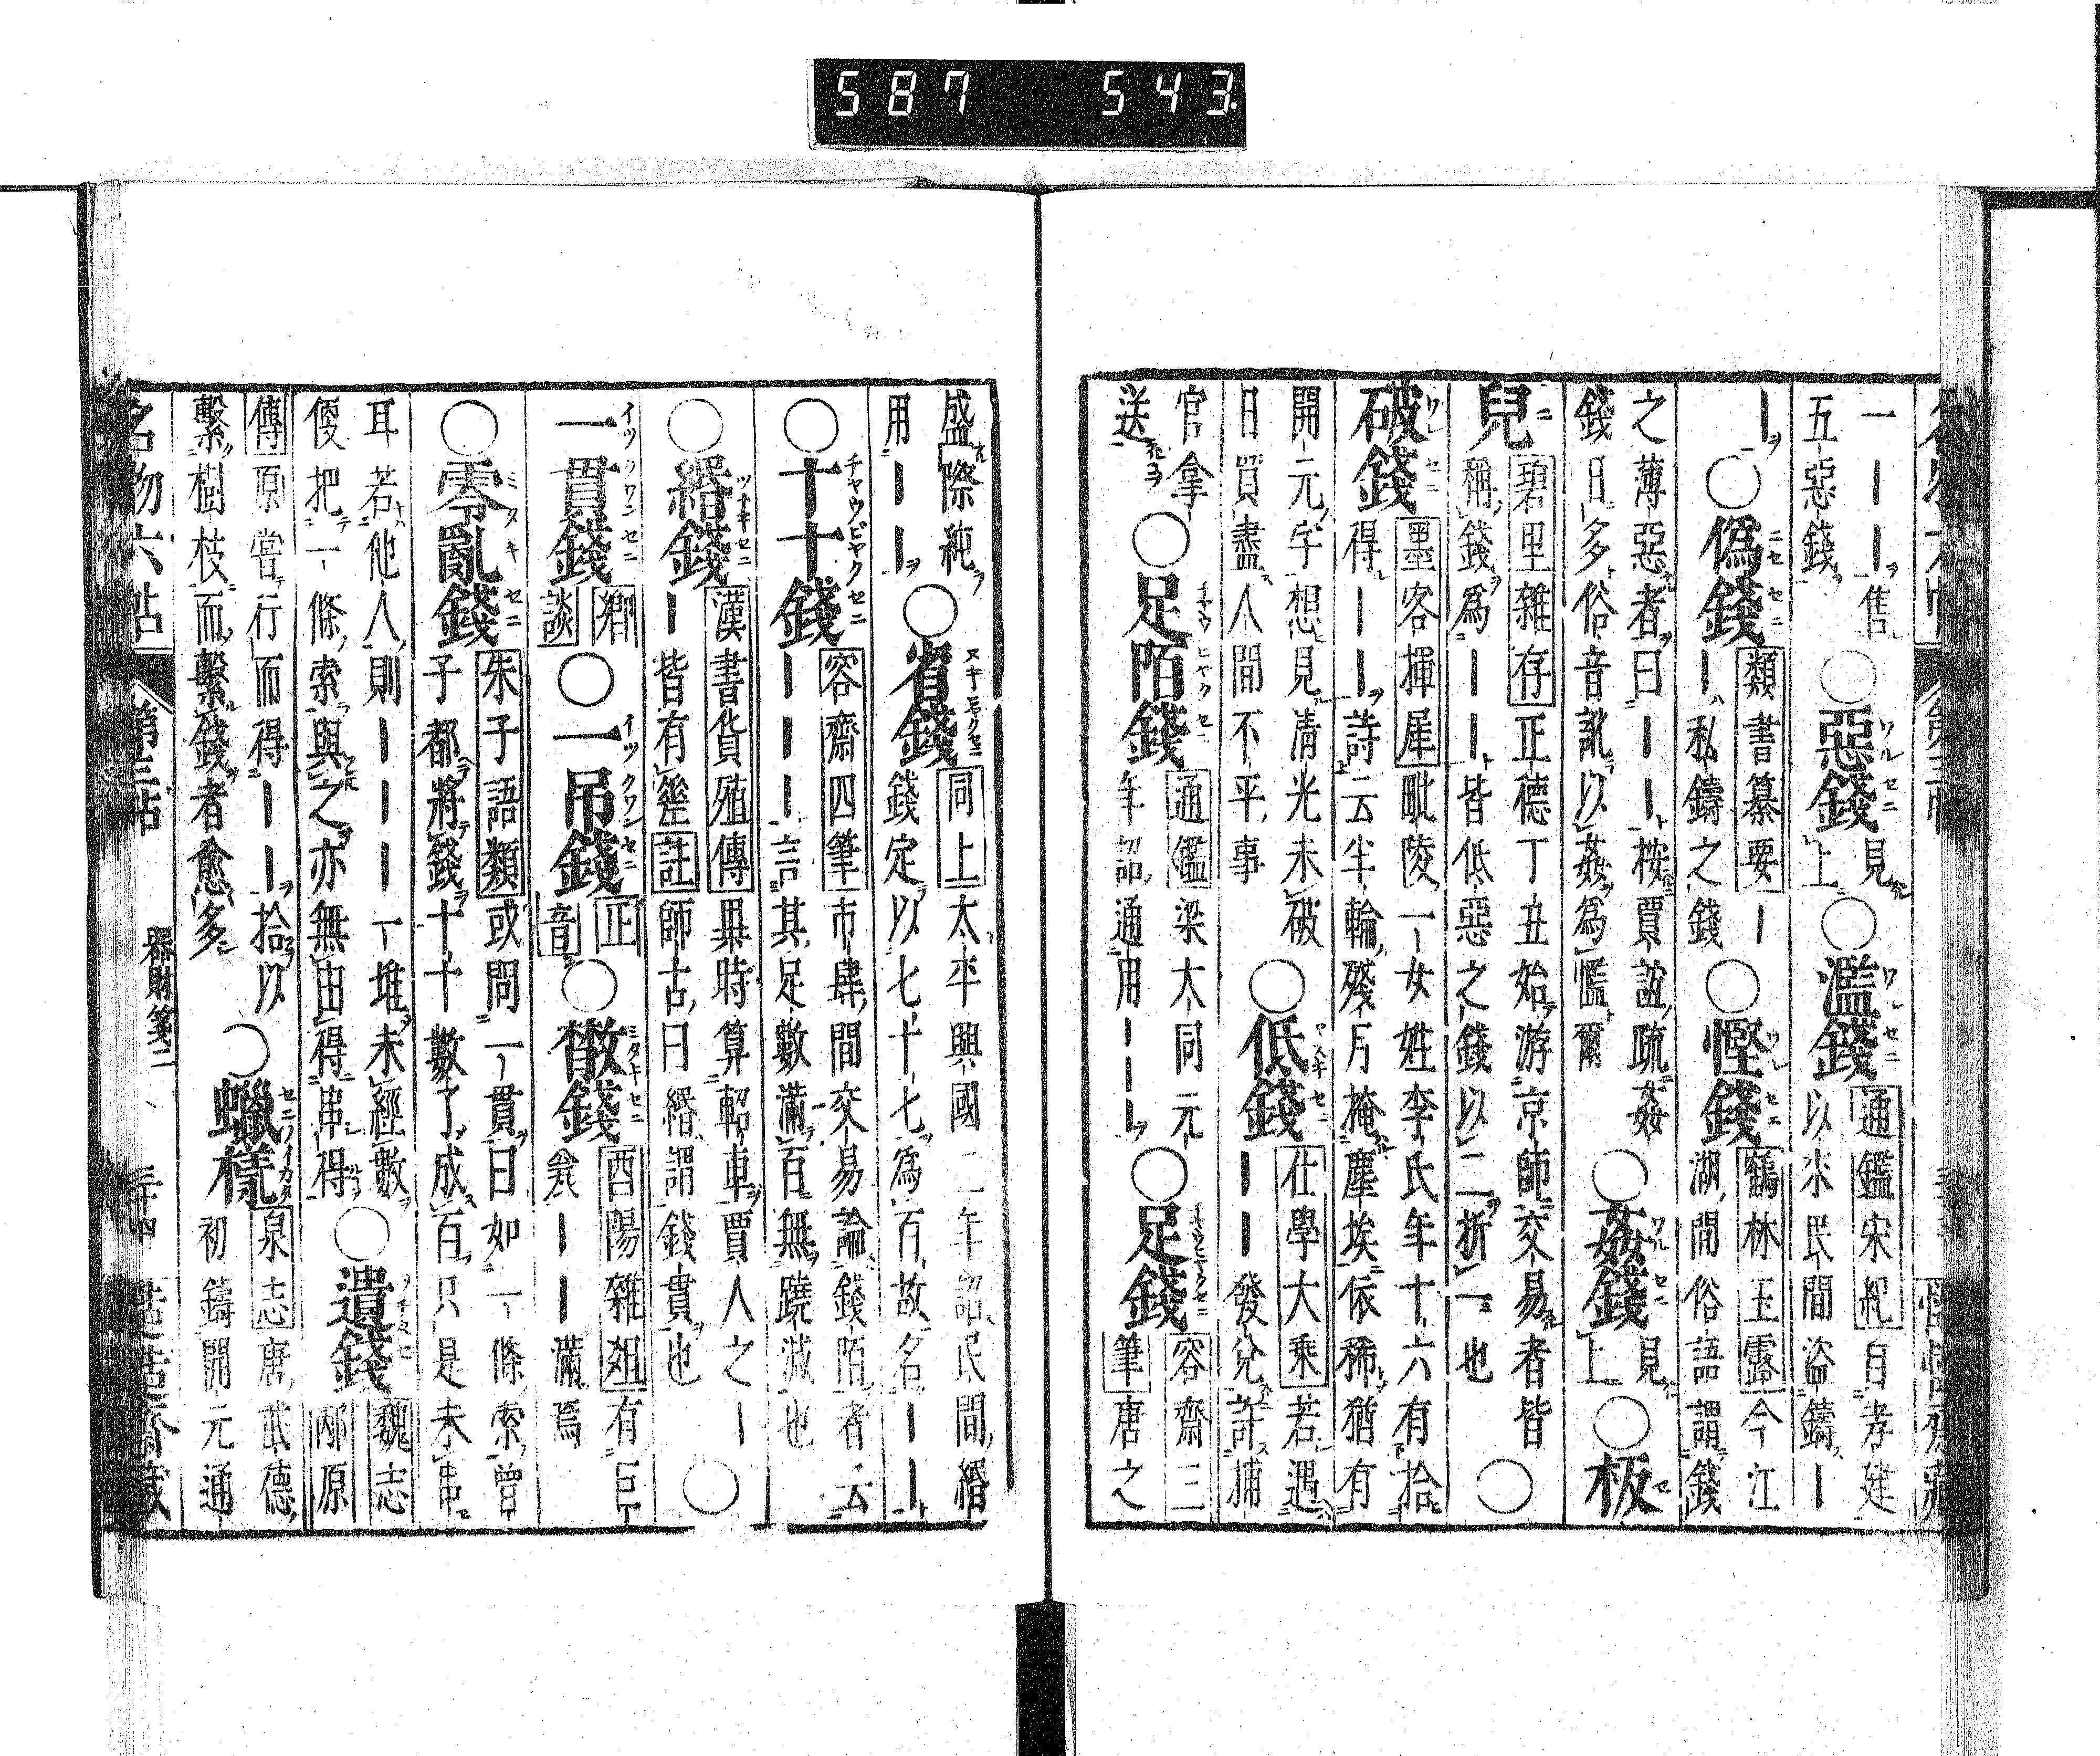 587 543
一｜｜售
五惡錢
○惡錢 見上
○濫錢 通鑑宋紀自孝建
以來民間盜鑄｜
｜○僞錢 類書纂要｜
｜私鑄之錢
○慳錢 鶴林玉露今江
湖間俗語謂錢
之薄惡者曰｜｜桉賈誼疏姦
錢日多俗音訛以姦爲慳爾
○姦錢 見上
○板
兒 碧里雜存正德丁丑始游京師交易者皆
稱錢爲｜｜皆低惡之錢以二折一也
○
破錢 墨客揮犀毗陵一女姓李氏年十六有拾
得｜｜詩云半輪殘月掩塵埃依稀猶有
開元字想見清光未破
日買盡人間不平事
○低錢 仕學大乘若遇
｜｜發兌許捕
官拿
送
○足陌錢 通鑑梁大同元
年詔通用｜｜｜
○足錢 容齋三
筆唐之
盛際純
用｜｜
○省錢 同上太平興國二年詔民間緡
錢定以七十七爲百故名｜｜
○十十錢 容齋四筆市肆間交易論錢陌者云
｜｜｜言其足數滿百無蹺減也
○緡錢 漢書貨殖傳異時算軺車賈人之｜
｜皆有差註師古曰緡謂錢貫也
○
一貫錢 鄉談
○一吊錢 正音
○散錢 酉陽雜俎有巨
甕｜｜滿焉
○零亂錢 朱子語類或問一貫曰如一條索曾
子都將錢十十數了成百只是未串
耳若他人則｜｜｜一堆未經數
便把一條索與之亦無由得串得
○遺錢 魏志
邴原
傳原嘗行而得｜｜拾以
繫樹枝而繫錢者愈多
○蠟樣 泉志唐武德
初鑄開元通
名物六帖 第三帖 器財箋二 三十四